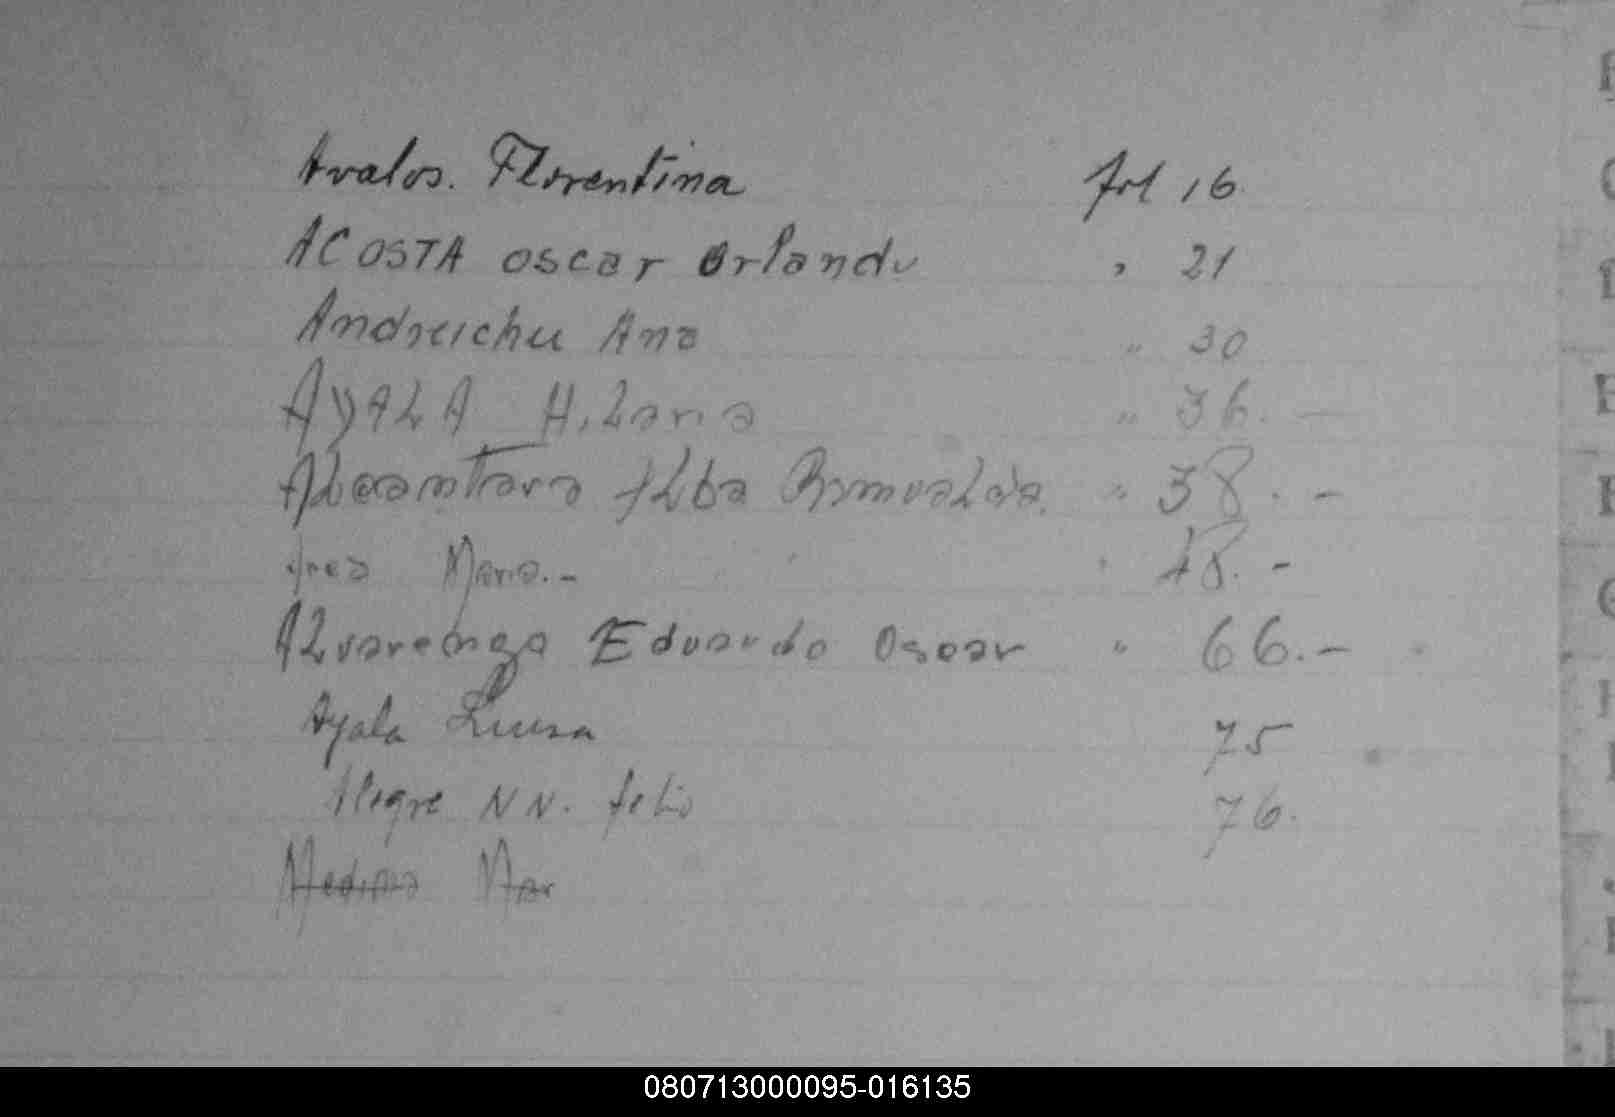 Avalos. Florentina fol 16.
ACOSTA Oscar Orlando " 21
Andreichu Ana " 30
AYALA HiLaria " 36. —
ALcantara ALba RomuaLda. " 38. –
Maria. – 48. –
ALvarenga Eduardo Oscar " 66. –
Ayala Luisa 75
Alegre NN. 76.
Medina Mar
080713000095-016135